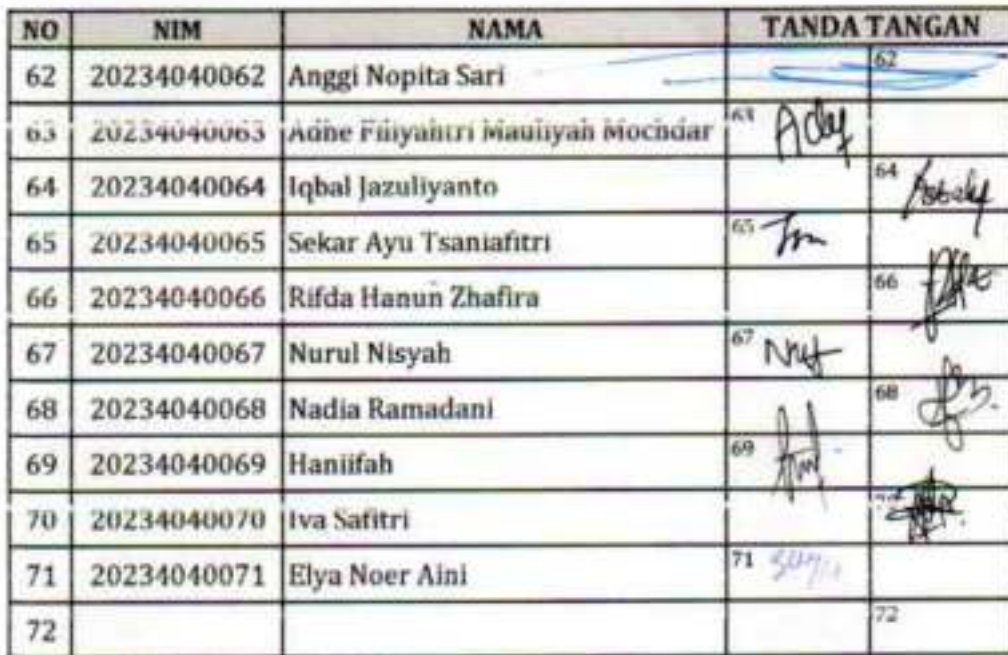 NO NIM NAMA TANDA TANGAN
62 20234040062 Anggi Nopita Sari 62
63 20234040063 Adhe Fitiyahtri Mauliyah Mochdar 63
64 20234040064 Iqbal Jazuliyanto 64
65 20234040065 Sekar Ayu Tsaniafitri 65
66 20234040066 Rifda Hanun Zhafira 66
67 20234040067 Nurul Nisyah 67
68 20234040068 Nadia Ramadani 68
69 20234040069 Haniifah 69
70 20234040070 Iva Safitri
71 20234040071 Elya Noer Aini 71
72 72